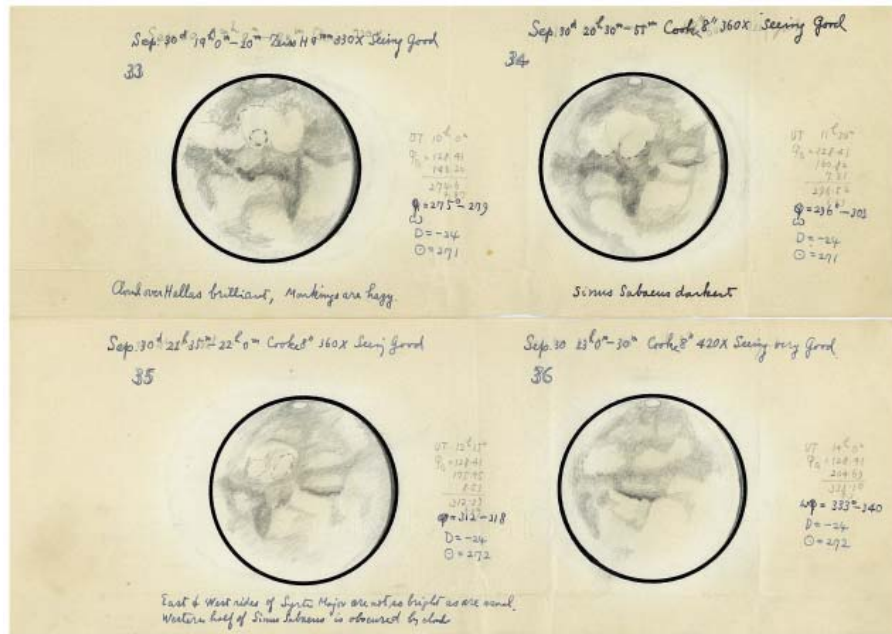 Sep. 30d 19h 0m–20m Zeiss H 9mm 330X Seeing Good
33
UT 10h 0m
= 128.41
φ = 275°–279
ω
D = –24
⊙ = 271
Cloud over Hellas brilliant, Markings are hazy.
Sep. 30d 20h 30m–55m Cooke 8" 360X Seeing Good
34
= 128.41
160.82
7.31
296.54
φ = 296°–303
ω
D = –24
⊙ = 271
Sinus Sabaeus darkest
Sep. 30d 21h 35m–22h 0m Cooke 8" 360X Seeing Good
35
= 128.41
175.45
φ = 312–318
D = –24
⊙ = 272
East & West sides of Syrtis Major are not as bright as are usual.
Western half of Sinus Sabaeus is obscured by cloud
Sep. 30 23h 0m–30m Cooke 8" 420X Seeing very Good
36
UT 14h 0m
= 128.41
ωφ = 333°–340
D = –24
⊙ = 272